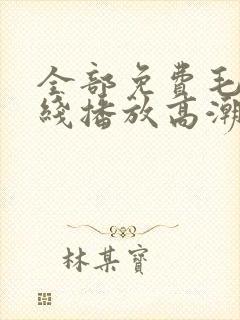 全部免費毛
綫播放高潮
林某寶